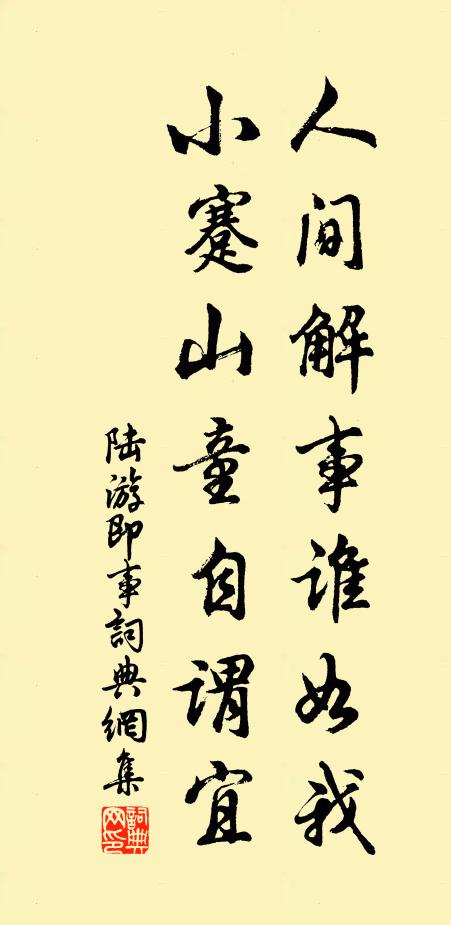 人间解事谁如我
小蹇山童自谓宜
陆游即事詞典網集
詞典网印